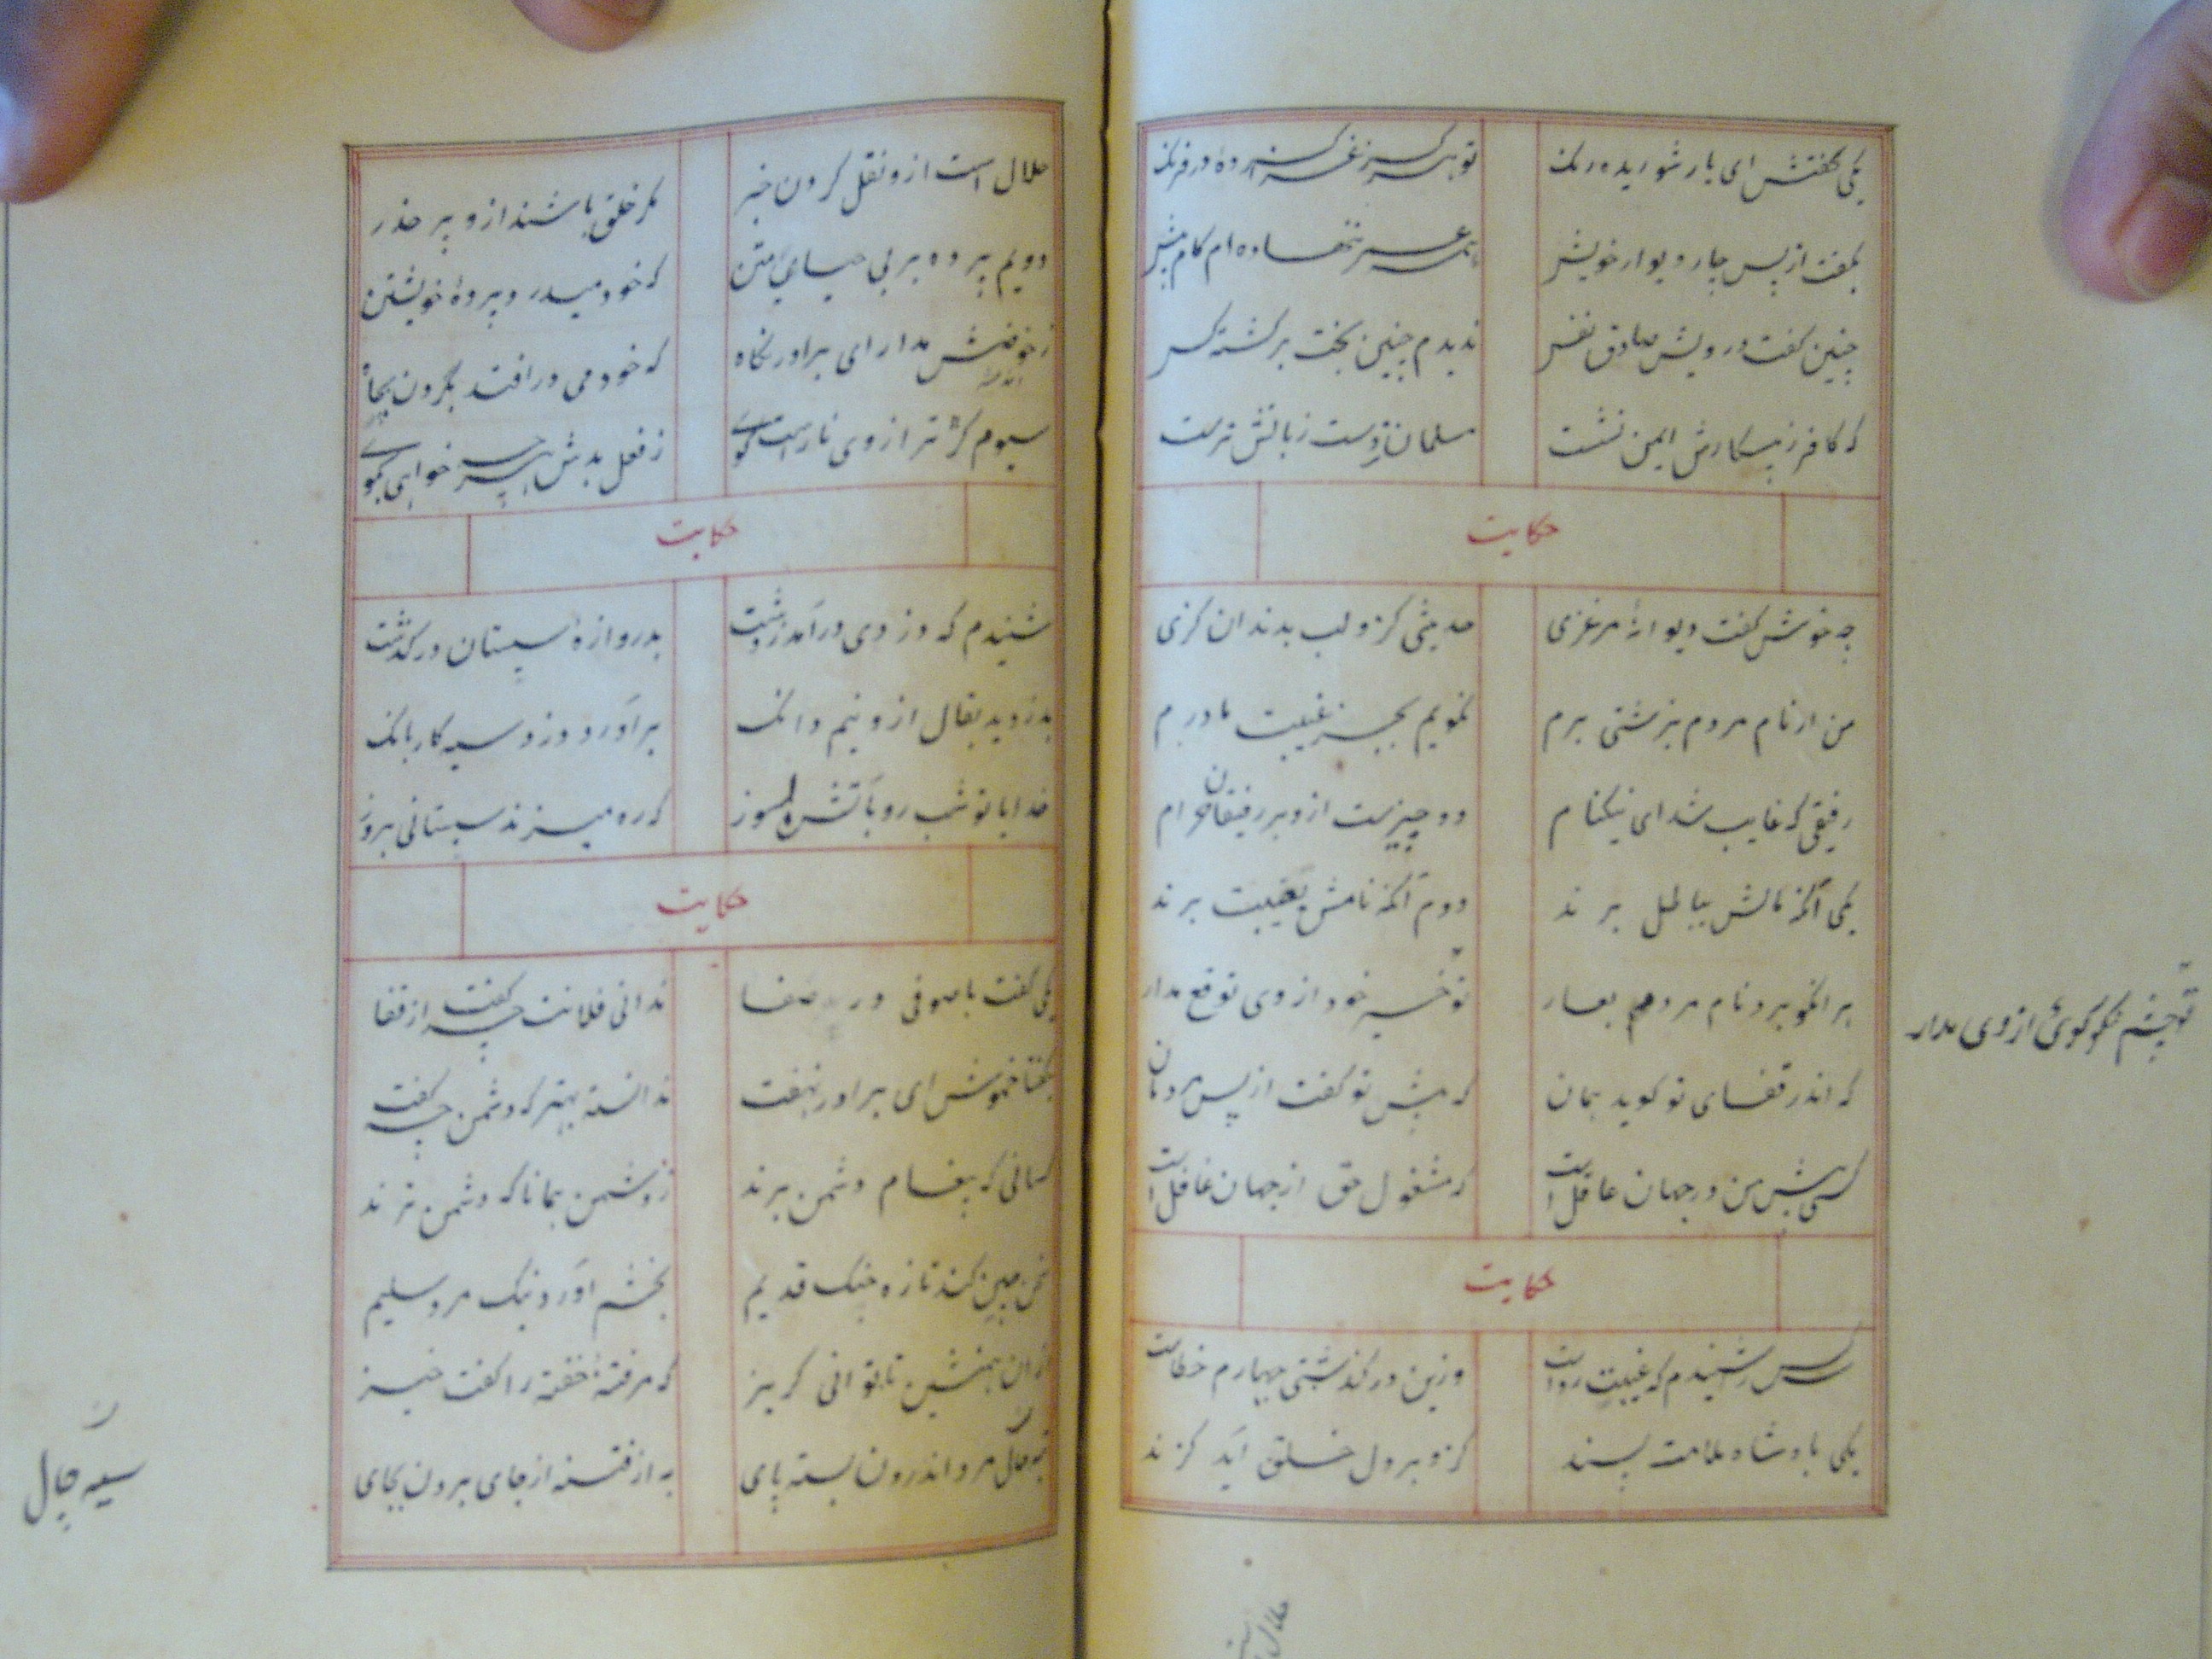 یکی گفتش ای یار شوریده رنگ تو هرگز غزا کرده در فرنگ
بگفت از پس چار دیوار خویش همه عمر ننهاده ام گام پیش
چنین گفت درویش صادق نفس ندیدم چنین بخت برگشته کس
که کافر ز پیکارش ایمن نشست مسلمان ز دست زبانش نرست
حکایت
چه خوش گفت دیوانهٔ مرغزی حدیثی کزو لب بدندان گزی
من ار نام مردم بزشتی برم نگویم بجز غیبت مادرم
رفیقی که غایب شد ای نیکنام دو چیزست ازو بر رفیقان حرام
یکی آنکه مالش بباطل برند دوم آنکه نامش بغیبت برند
هر انکو برد نام مردم بعار تو خیر خود از وی توقع مدار
تو چشم نکو گوئی از وی مدار
که اندر قفای تو گوید همان که پیش تو گفت از پس مردمان
کسی پیش من در جهان عاقل است که مشغول حق از جهان غافل است
حکایت
سه کس را شنیدم که غیبت رواست وزین درگذشتی چهارم خطاست
یکی پادشاه ملامت پسند کزو بر دل خلق آید گزند
حلال
حلال است ازو نقل کردن خبر مگر خلق باشند ازو پر حذر
دویم پرده بر بی حیایی متن که خود میدرد پردهٔ خویشتن
ز حوضش مدار ای برادر نگاه که خود می درافتد بگردن بچاه
سیوم کژ ترازوی ناراست گوی ز فعل بدش هر چه خواهی بگوی
حکایت
شنیدم که دزدی درآمد ز دشت بدروازهٔ سیستان درگذشت
بدزدید بقال ازو نیم دانگ برآورد دزد سیه کار بانگ
خدایا تو شب رو بآتش مسوز که ره میزند سیستانی بروز
حکایت
یکی گفت با صوفی در صفا ندانی فلانت چه گفت از قفا
بگفتا خموش ای برادر بخفت ندانسته بهتر که دشمن چه گفت
کسانی که پیغام دشمن برند ز دشمن همانا که دشمن ترند
سخن چین کند تازه جنگ قدیم بخشم آورد نیک مرد سلیم
ازان همنشین تا توانی گریز که مر فتنهٔ خفته را گفت خیز
سیه چال مرد اندرون بسته پای به از فتنه از جای بردن بجای
سیه چال